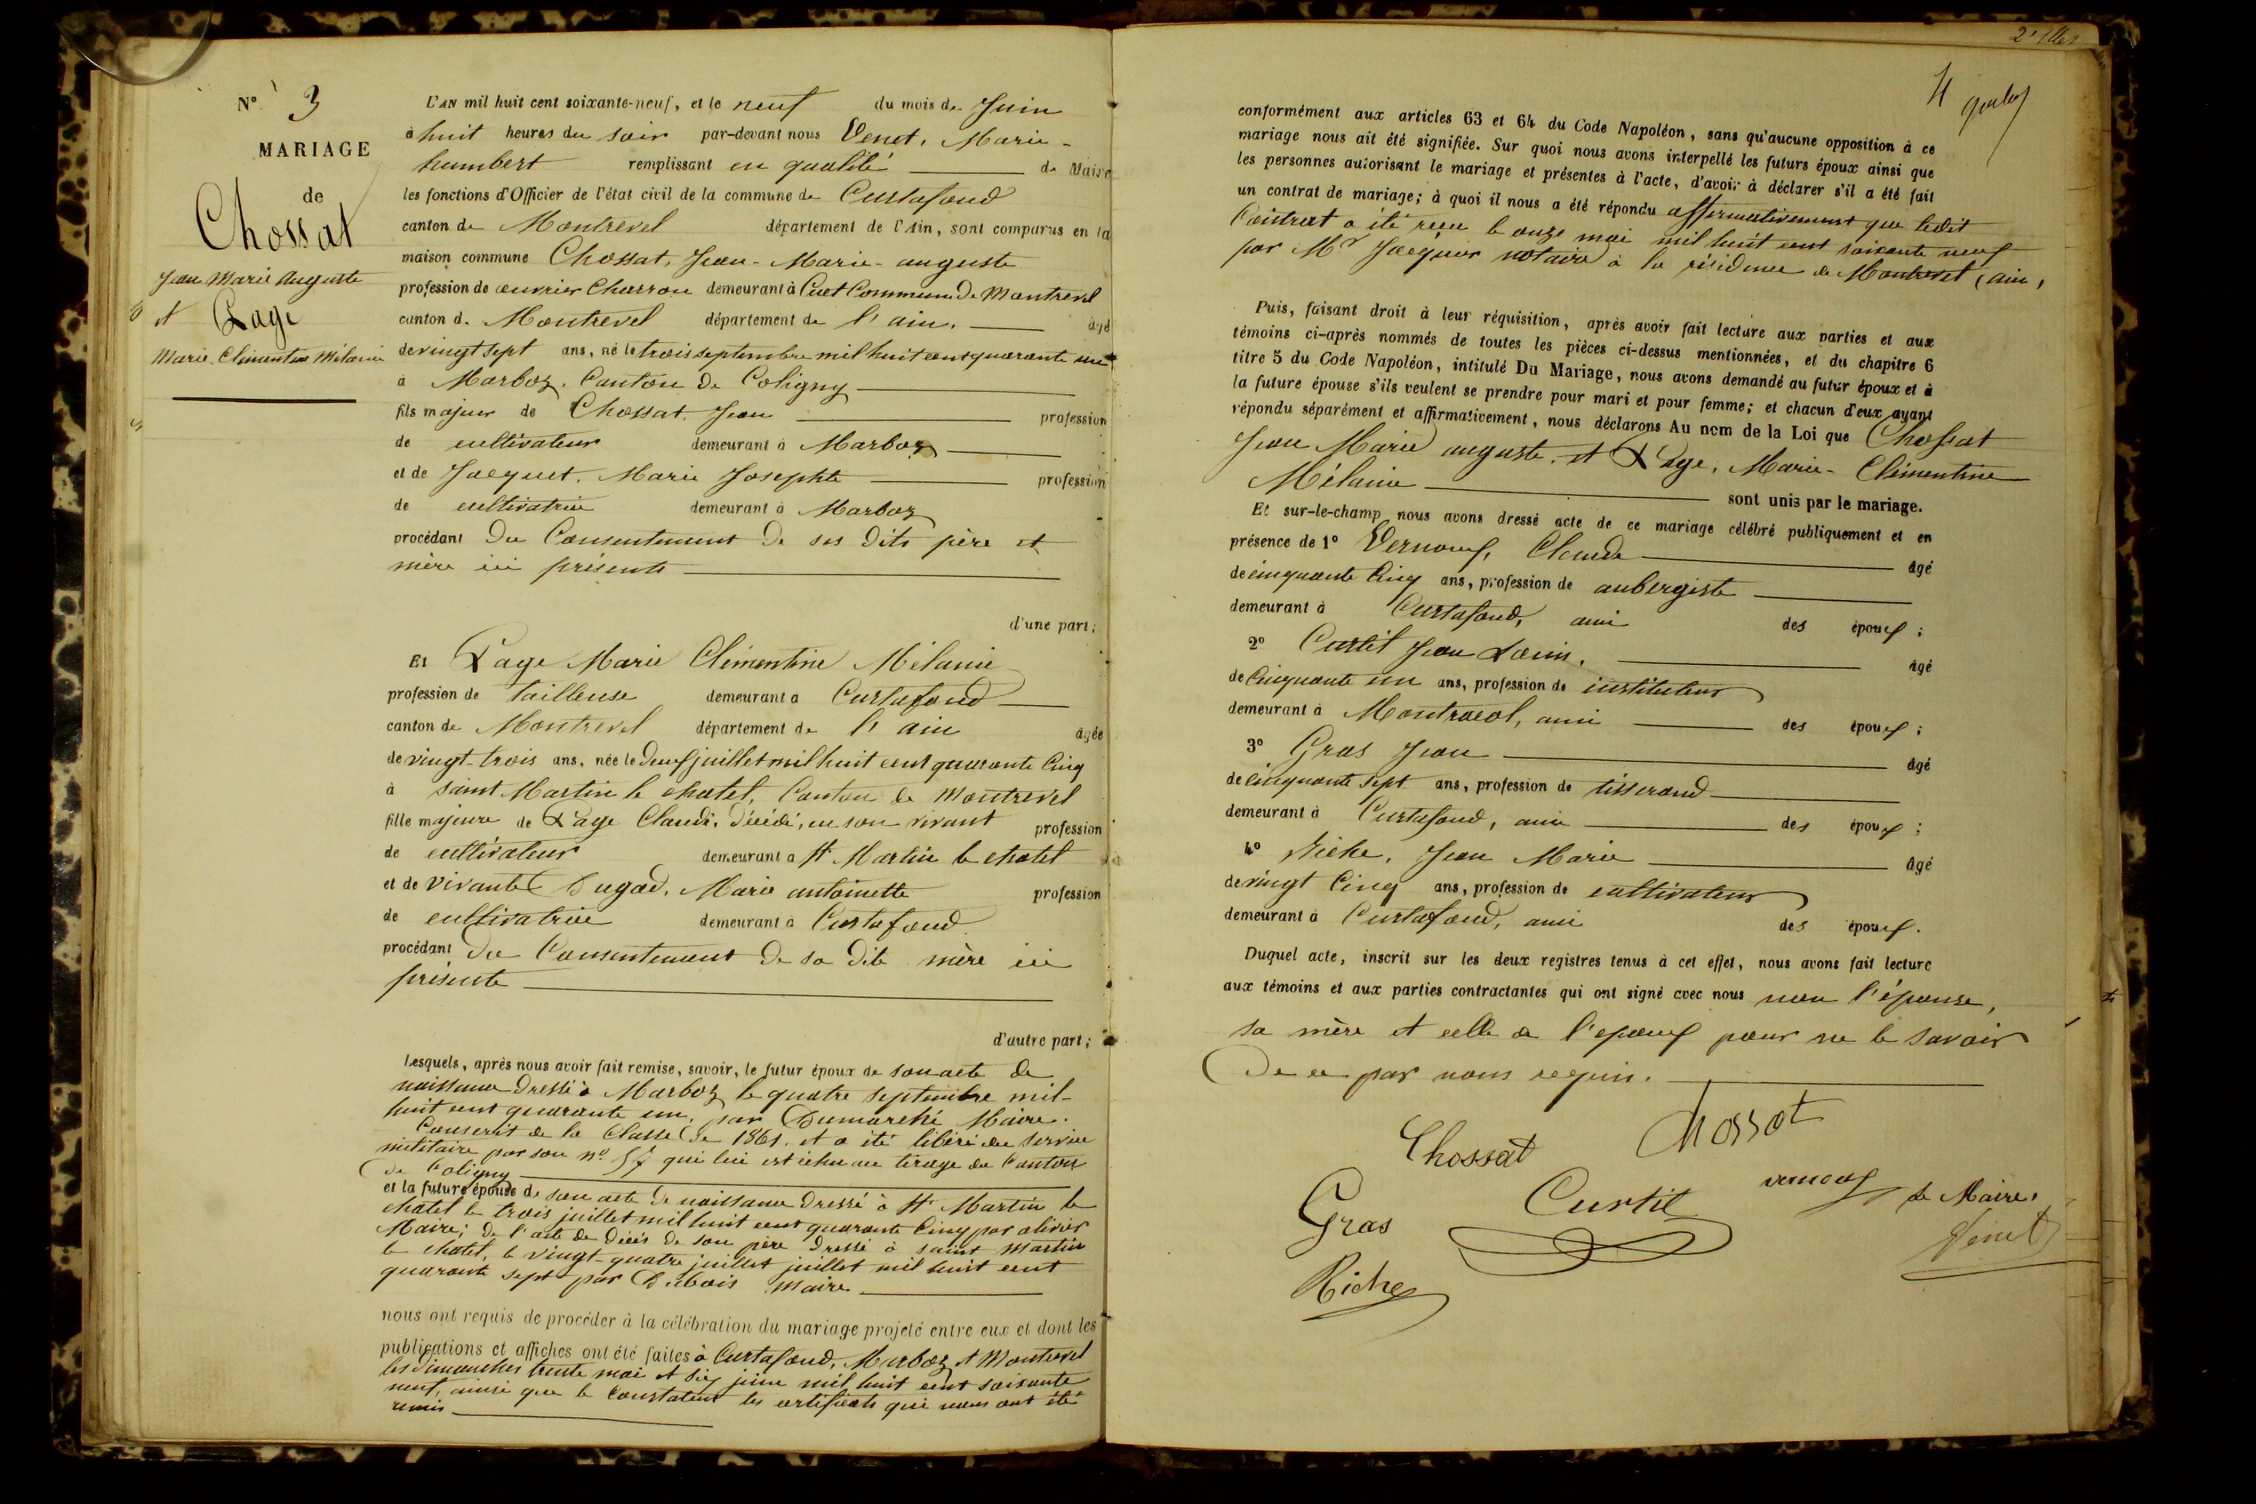 N° 3
MARIAGE
de
Chossat
Jean Marie Auguste
et Page
Marie Clémentine Mélanie
L'AN mil huit cent soixante-neuf, et le neuf du mois de Juin
à huit heures du soir par-devant nous Venet, Marie-
humbert remplissant en qualité de Maire
les fonctions d'Officier de l'état civil de la commune de Curtafond
canton de Montrevel département de l'Ain, sont comparus en la
maison commune Chossat, Jean-Marie-auguste
profession de ouvrier Charron demeurant à Cuet Commune De Montrevel
canton de Montrevel département de l'ain, âgé
de vingt sept ans, né le trois septembre mil huit cent quarante un
à Marboz, Canton De Coligny
fils majeur de Chossat Jean profession
de cultivateur demeurant à Marboz
et de Jacquet, Marie Josephte profession
de cultivatrice demeurant à Marboz
procédant Du Consentement De ses Dits père et
mère ici présents
d'une part;
Et Page Marie Clémentine Mélanie
profession de tailleuse demeurant à Curtafond
canton de Montrevel département de l'ain âgée
de vingt-trois ans, née le deux juillet mil huit cent quarante Cinq
à saint Martin le chatel, Canton de Montrevel
fille majeure de Page Claude, Décédé, en son vivant profession
de cultivateur demeurant à St Martin le chatel
et de vivante Dugad, Marie antoinette profession
de cultivatrice demeurant à Curtafond
procédant Du Consentement De sa Dite mère ici
présente
d'autre part;
Lesquels, après nous avoir fait remise, savoir, le futur époux de son acte De
naissance Dressé à Marboz le quatre septembre mil-
huit cent quarante un, par Dumarché Maire.
Conscrit de la Classe De 1861. et a été libéré du service
militaire par son n° 57 qui lui est échu au tirage du Canton
De Coligny
et la future épouse de son acte De naissance Dressé à St Martin le
chatel le trois juillet mil huit cent quarante Cinq par olivier
Maire; De l'acte de Décès de son père Dressé à saint Martin
le chatel, le vingt-quatre juillet juillet mil huit cent
quarante sept par Dubois Maire
nous ont requis de procéder à la célébration du mariage projeté entre eux et dont les
publications et affiches ont été faites à Curtafond, Marboz et Montrevel
les Dimanches trente mai et six juin mil huit cent soixante
neuf, ainsi que le Constatent les certificats qui nous ont été
remis
4
conformément aux articles 63 et 64 du Code Napoléon, sans qu'aucune opposition à ce
mariage nous ait été signifiée. Sur quoi nous avons interpellé les futurs époux ainsi que
les personnes autorisant le mariage et présentes à l'acte, d'avoir à déclarer s'il a été fait
un contrat de mariage; à quoi il nous a été répondu affirmativement que ledit
Contrat a été reçu le onze mai mil huit cent soixante neuf
par Mr Jacquier notaire à la résidence de Montrevel (ain,
Puis, faisant droit à leur réquisition, après avoir fait lecture aux parties et aux
témoins ci-après nommés de toutes les pièces ci-dessus mentionnées, et du chapitre 6
titre 5 du Code Napoléon, intitulé Du Mariage, nous avons demandé au futur époux et à
la future épouse s'ils veulent se prendre pour mari et pour femme; et chacun d'eux ayant
répondu séparément et affirmativement, nous déclarons Au nom de la Loi que Chossat
Jean Marie auguste, et Page, Marie-Clémentine
Mélanie sont unis par le mariage.
Et sur-le-champ nous avons dressé acte de ce mariage célébré publiquement et en
présence de 1° Vernoux, Claude âgé
de cinquante Cinq ans, profession de aubergiste
demeurant à Curtafond, ami des époux;
2° Curtil Jean Louis, âgé
de Cinquante un ans, profession de instituteur
demeurant à Montracol, ami des époux;
3° Gras Jean âgé
de cinquante sept ans, profession de tisserand
demeurant à Curtafond, ami des époux;
4° Riche, Jean Marie âgé
de vingt Cinq ans, profession de cultivateur
demeurant à Curtafond, ami des époux.
Duquel acte, inscrit sur les deux registres tenus à cet effet, nous avons fait lecture
aux témoins et aux parties contractantes qui ont signé avec nous non l'épouse,
sa mère et celle de l'époux pour ne le savoir
De ce par nous requis.
Chossat Chossat
Gras Curtil vernoux Le Maire,
Riche Venet